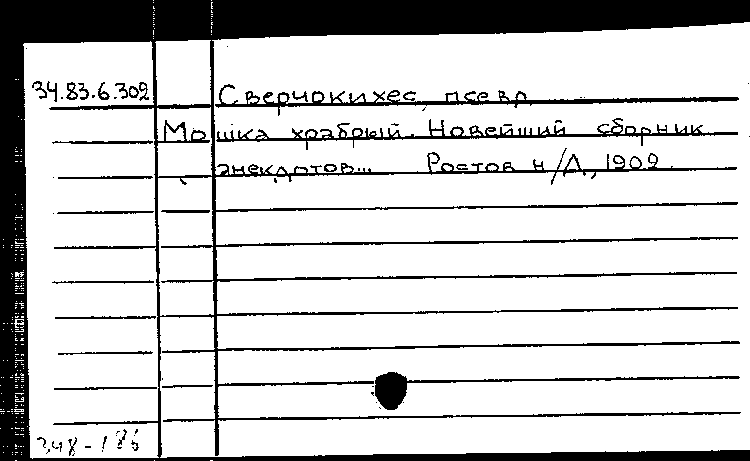 34.83.6.302 Сверчокихес, псевд.
Мошка храбрый. Новейший сборник
анекдотов... Ростов н/Д, 1909.
348-186